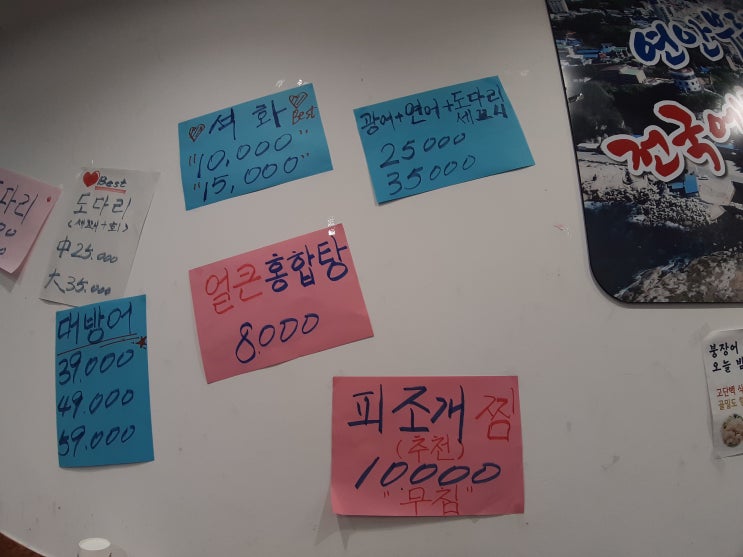 석화
Best
"10,000"
"15,000"
광어+연어+도다리
세꼬시
25000
35000
Best
도다리
(세꼬시+회)
中 25.000
大 35.000
다리
얼큰 홍합탕
8.000
대방어
39.000
49.000
59.000
피조개 찜
(추천)
10000
"무침"
연안부
전국에
붕장어
오늘 밤
고단백 식